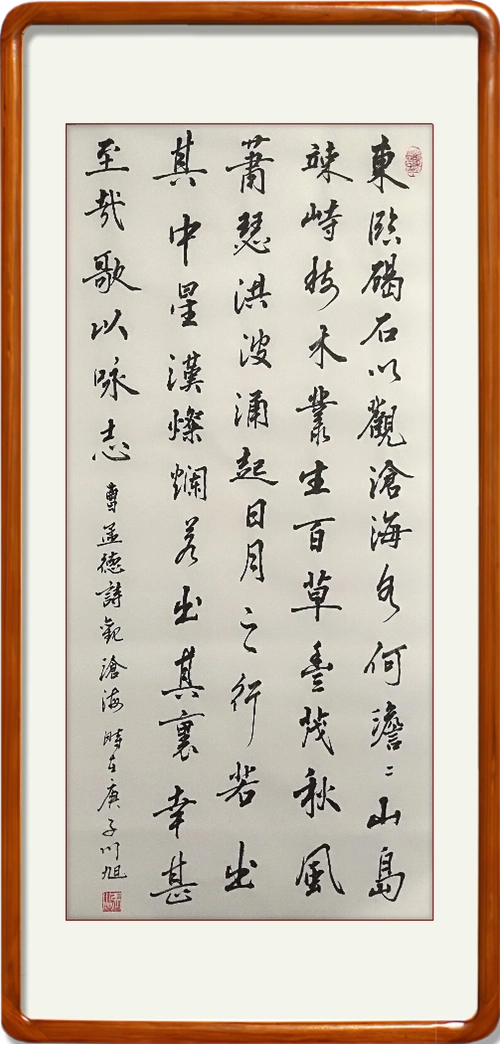 東臨碣石以觀滄海水何澹〻山島
竦峙樹木叢生百草豊茂秋風
蕭瑟洪波涌起日月之行若出
其中星漢燦爛若出其裏幸甚
至哉歌以咏志
曹孟德詩觀滄海時在庚子川旭